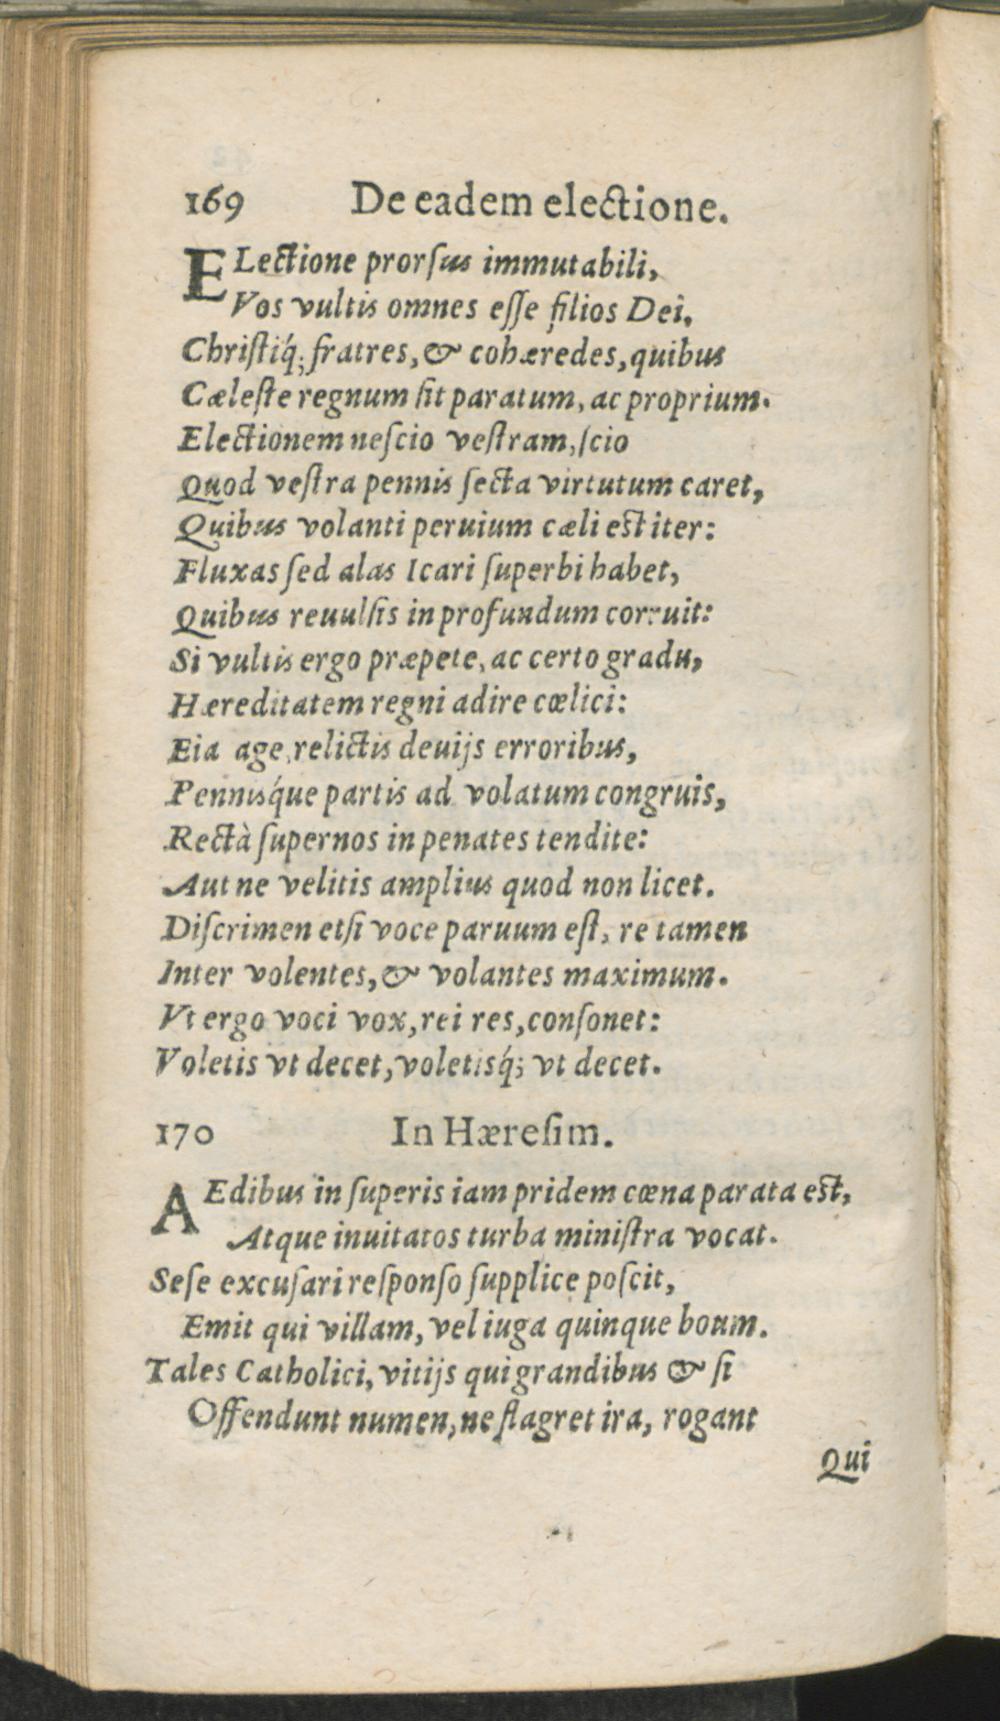 169 De eadem electione.
ELectione prorſus immutabili,
Vos vultis omnes eſſe filios Dei,
Chriſtiq́; fratres, & cohæredes, quibus
Cæleſte regnum ſit paratum, ac proprium.
Electionem neſcio veſtram, ſcio
Quod veſtra pennis ſecta virtutum caret,
Quibus volanti peruium cæli est iter:
Fluxas ſed alas Icari ſuperbi habet,
Quibus reuulſis in profundum corruit:
Si vultis ergo præpete, ac certo gradu,
Hæreditatem regni adire cœlici:
Eia age, relictis deuijs erroribus,
Pennisq́ue partis ad volatum congruis,
Rectà ſupernos in penates tendite:
Aut ne velitis amplius quod non licet.
Diſcrimen etſi voce paruum eſt, re tamen
Inter volentes, & volantes maximum.
Vt ergo voci vox, rei res, conſonet:
Voletis vt decet, voletisq́; vt decet.
170 In Hæreſim.
AEdibus in ſuperis iam pridem cœna parata est,
Atque inuitatos turba miniſtra vocat.
Seſe excuſari reſponſo ſupplice poſcit,
Emit qui villam, vel iuga quinque boum.
Tales Catholici, vitijs qui grandibus & ſi
Offendunt numen, ne flagret ira, rogant
Qui